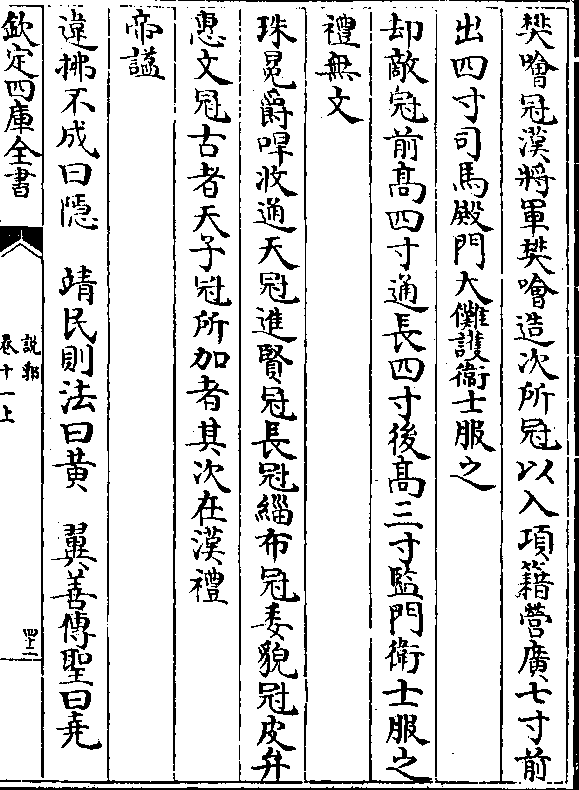 樊噲冠漢將軍樊噲造次所冠以入項籍營廣七寸前
出四寸司馬殿門大儺護衛士服之
却敵冠前髙四寸通長四寸後髙三寸監門衛士服之
禮無文
珠冕爵㖔收通天冠進賢冠長冠緇布冠委貌冠皮弁
惠文冠古者天子冠所加者其次在漢禮
帝諡
違拂不成曰隠　靖民則法曰黄　翼善傳聖曰堯
欽定四庫全書
說郛
卷十一上